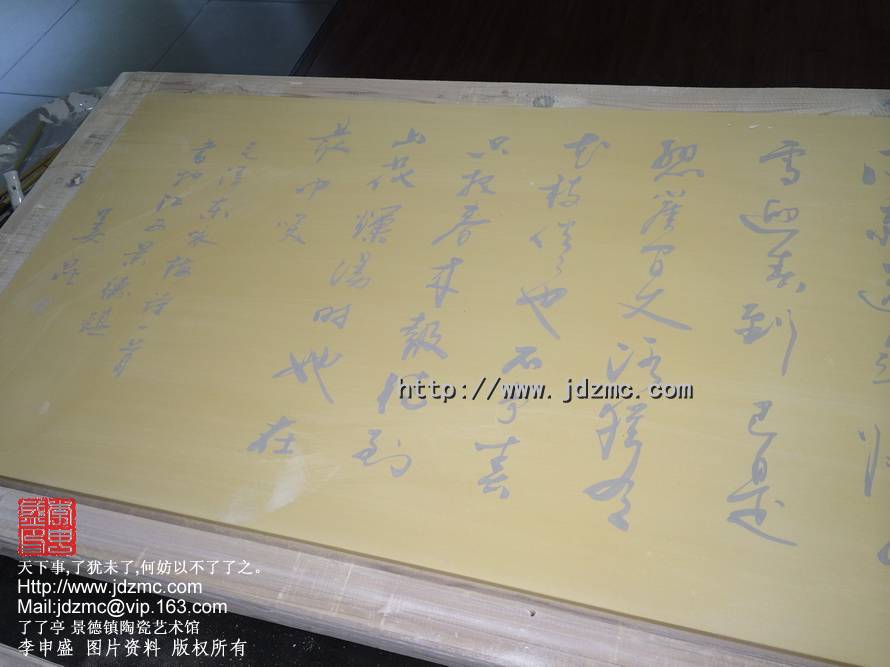 雪迎春到已是
懸崖百丈冰猶有
花枝俏俏也不爭春
只把春来報待到
山花爛漫时她在
叢中笑
毛泽东咏梅诗一首
书于江西景德镇
姜
http://www.jdzmc.com
天下事,了犹未了,何妨以不了了之。
Http://www.jdzmc.com
Mail:jdzmc@vip.163.com
了了亭 景德镇陶瓷艺术馆
李申盛 图片资料 版权所有